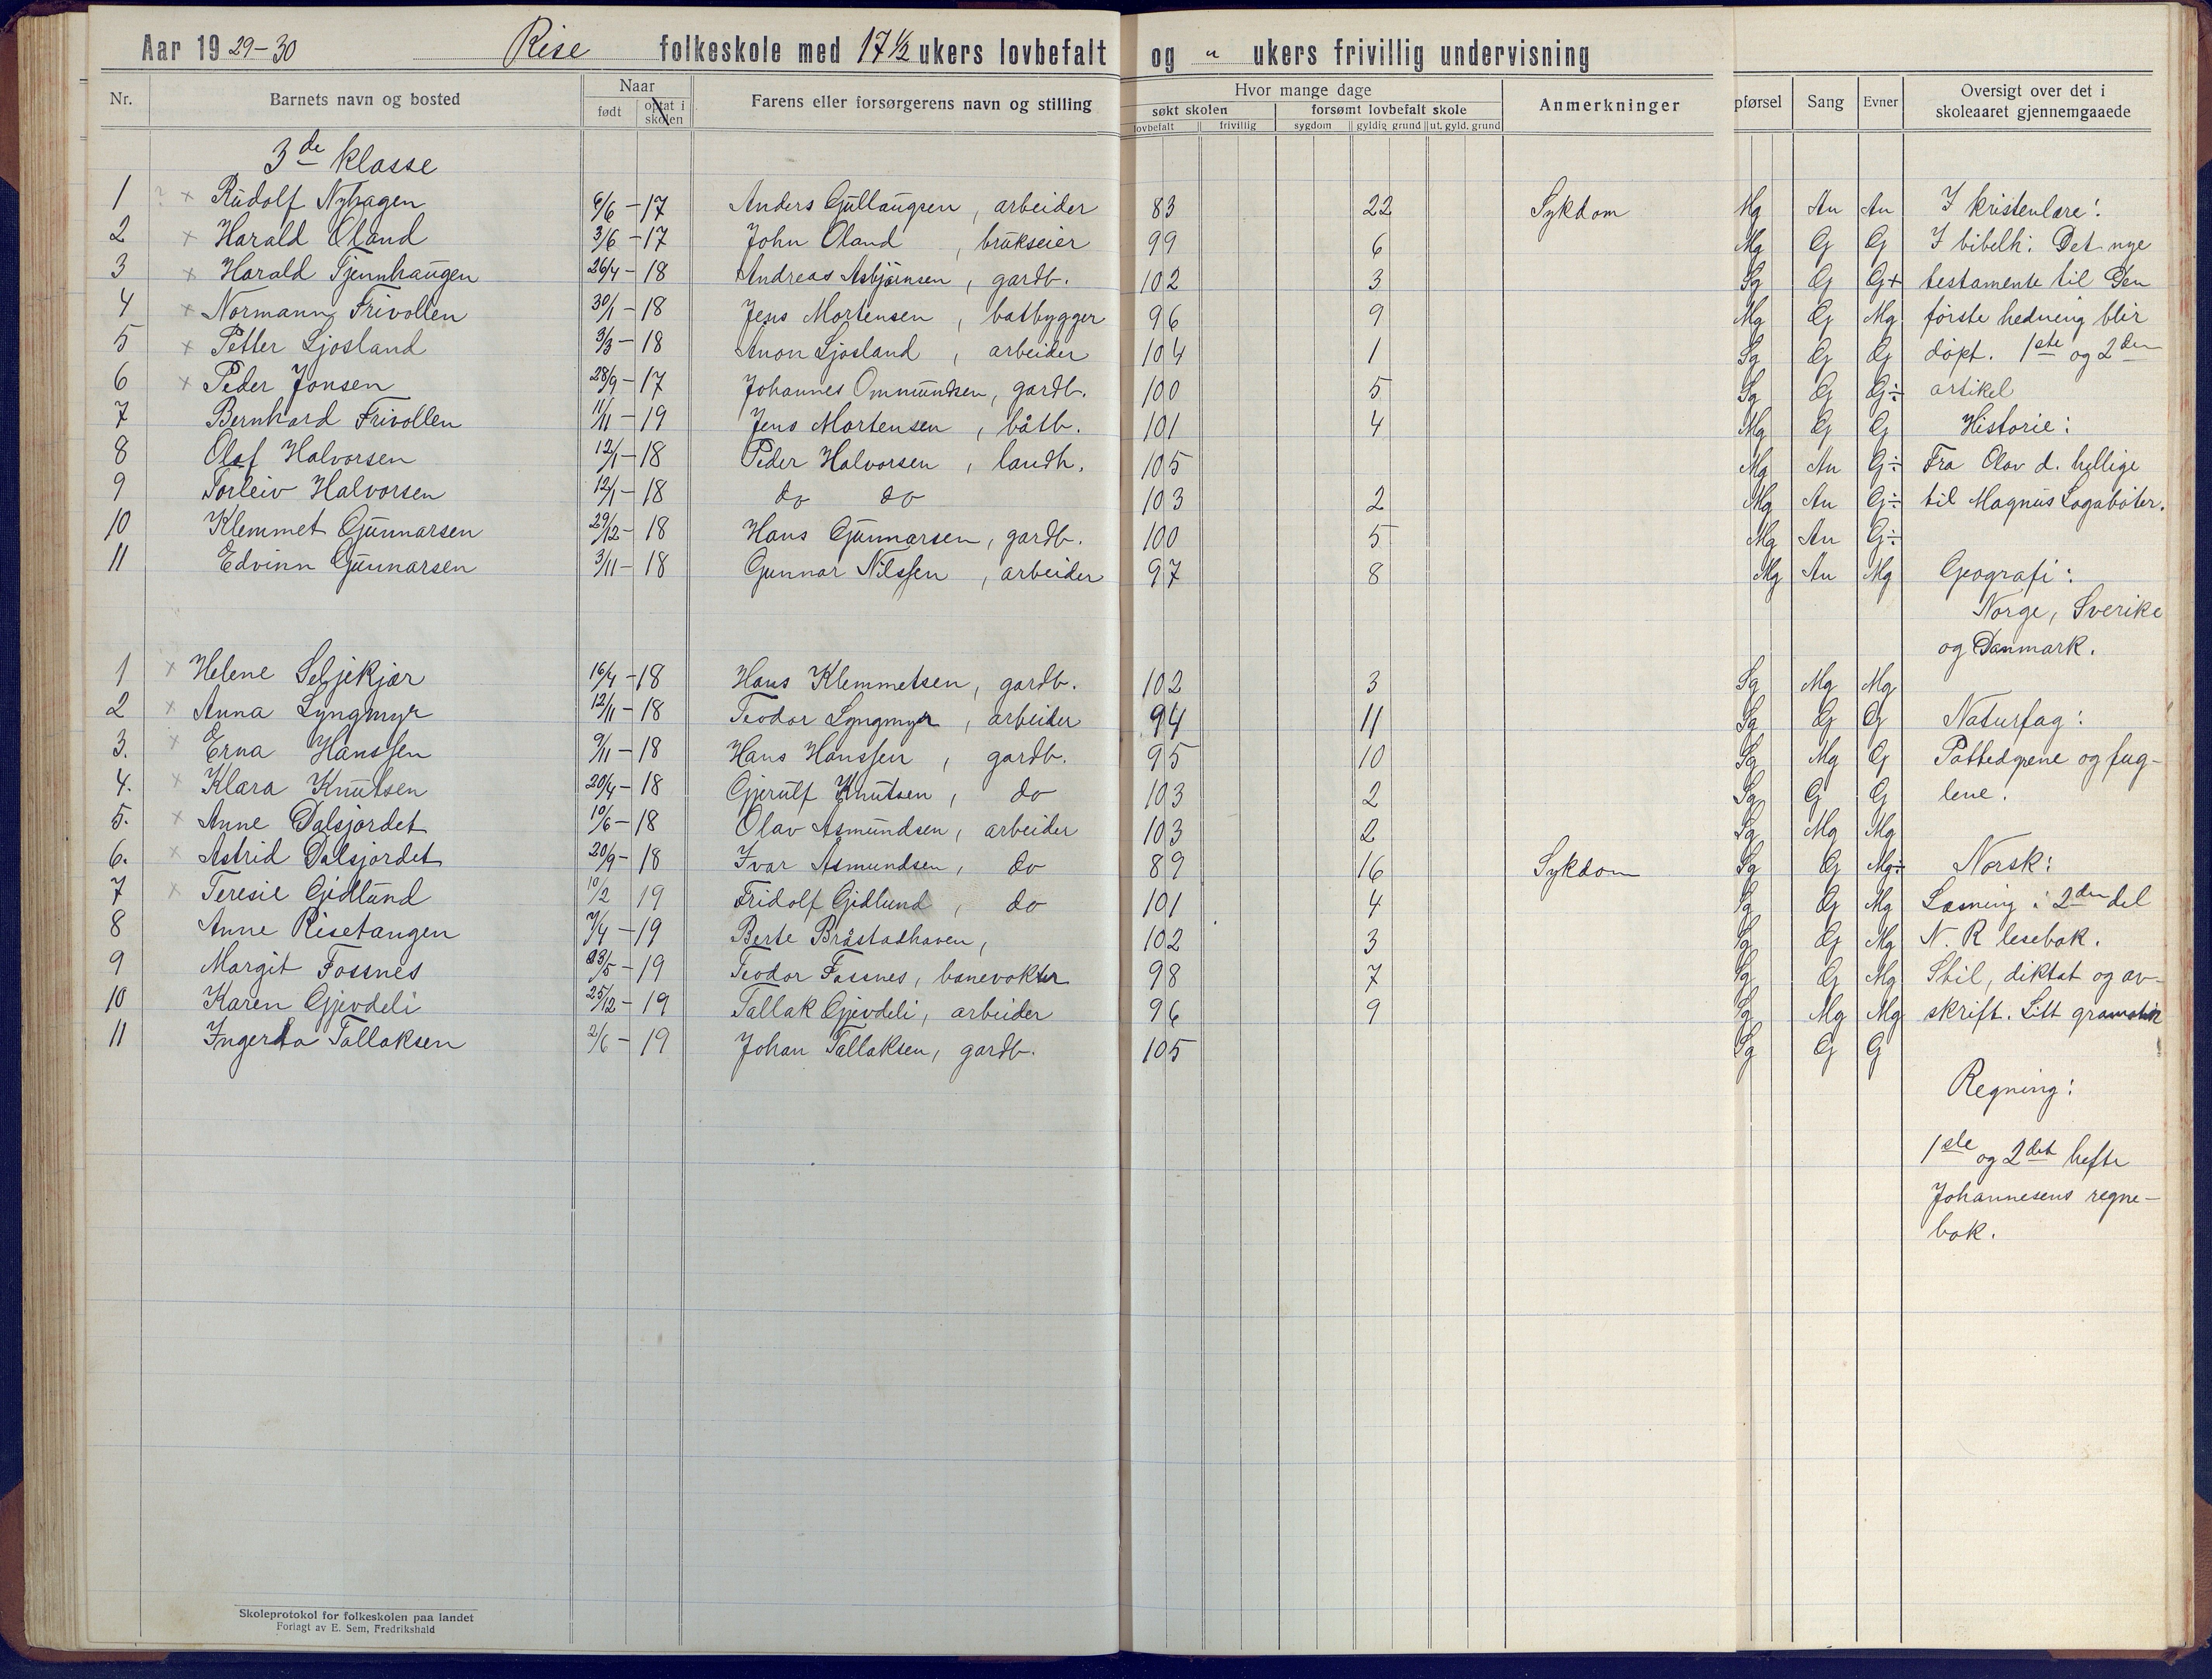 Aar 1929-30 Rise folkeskole med 17 1/2 ukers lovbefalt og " ukers frivillig undervisning
Nr. Barnets navn og bosted Naar født optat i skolen Farens eller forsørgerens navn og stilling Hvor mange dage søkt skolen lovbefalt frivillig forsømt lovbefalt skole sygdom gyldig grund ut. gyld. grund Anmerkninger pførsel Sang Evner Oversigt over det i skoleaaret gjennemgaaede
3de klasse
1 ? x Rudolf Nyhagen 6/6 - 17 Anders Gullaugsen, arbeider 83 22 Sykdom Mg An An I kristenlære:
2 x Harald Øland 3/6 - 17 John Øland, brukseier 99 6 Mg G G I bibelh: Det nye
3 x Harald Tjennhaugen 26/4 - 18 Andreas Asbjørnsen, gardb. 102 3 Sg G G+ testamente til Den
4 x Normann Frivollen 30/1 - 18 Jens Mortensen, båtbygger 96 9 Mg G Mg første hedning blir
5 x Petter Ljosland 3/3 - 18 Anon Ljosland, arbeider 104 1 Sg G G døpt. 1ste og 2den
6 x Peder Jonsen 28/9 - 17 Johannes Ommundsen, gardb. 100 5 Sg G G÷ artikel
7 Bernhard Frivollen 11/11 - 19 Jens Mortensen, båtb. 101 4 Mg G G Historie:
8 Olaf Halvorsen 12/1 - 18 Peder Halvorsen, landh. 105 Mg An G÷ Fra Olav d. hellige
9 Torleiv Halvorsen 12/1 - 18 do do 103 2 Mg An G÷ til Magnus Lagabøter.
10 Klemmet Gunnarsen 29/12 - 18 Hans Gunnarsen, gardb. 100 5 Mg An G÷
11 Edvinn Gunnarsen 3/11 - 18 Gunnar Nilssen, arbeider 97 8 Mg An Mg Geografi:
Norge, Sverike
og Danmark.
1 x Helene Seljekjær 16/4 - 18 Hans Klemmetsen, gardb. 102 3 Sg Mg Mg
2 x Anna Lyngmyr 12/11 - 18 Teodor Lyngmyr, arbeider 94 11 Sg G G Naturfag:
3. x Erna Hanssen 9/11 - 18 Hans Hanssen, gardb. 95 10 Sg Mg G Pattedyrene og fug-
4. x Klara Knutsen 20/4 - 18 Gjerulf Knutsen, do 103 2 Sg G G lene.
5. x Anne Dalsjordet 10/6 - 18 Olav Asmundsen, arbeider 103 2 Sg Mg Mg
6. x Astrid Dalsjordet 20/9 - 18 Ivar Asmundsen, do 89 16 Sykdom Sg G Mg÷ Norsk:
7 x Teresie Gidlund 10/2 19 Fridolf Gidlund, do 101 4 Sg G Mg Læsning i 2den del
8 Anne Risetangen 7/4 - 19 Berte Bråstadhaven, 102 3 Sg G Mg N. R lesebok.
9 Margit Fossnes 23/5 - 19 Teodor Fossnes, banevokter 98 7 Sg G Mg Stil, diktat og av-
10 Karen Gjevdeli 25/12 - 19 Tallak Gjevdeli, arbeider 96 9 Sg Mg Mg skrift. Litt gramatik
11 Ingerda Tallaksen 2/6 - 19 Johan Tallaksen, gardb. 105 Sg G G
Regning:
1ste og 2det hefte
Johannesens regne-
bok.
Skoleprotokol for folkeskolen paa landet
Forlagt av E. Sem, Fredrikshald